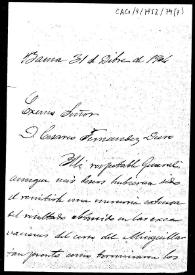 CAG/9/7958/79(1)
Baena 31 de Dcbre de 1904
Excmo Señor
D. Cesareo Fernandez Duro
Mi respetable General
aunque mis deseos hubieran sido
el remitirle una memoria extensa
del resultado obtenido en las exca
vaciones del cerro del Minguillar
tan pronto como terminaran las